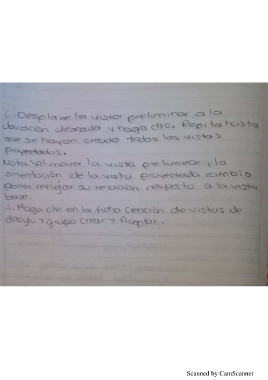 6. Desplace la vista preliminar a la
ubicación deseada y haga clic. Repita hasta
que se hayan creado todas las vistas
proyectadas.
Nota: Al mover la vista preliminar, la
orientación de la vista proyectada cambia
para reflejar su relación respecto a la vista
base.
7. Haga clic en la ficha Creación de vistas de
dibujo > grupo Crear > Aceptar.
Scanned by CamScanner